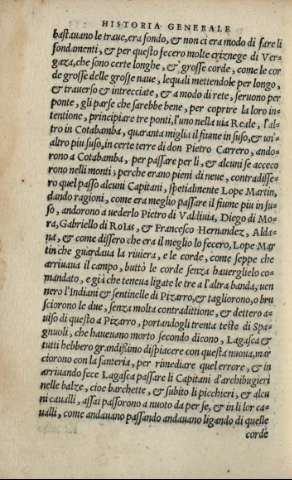 HISTORIA GENERALE
bastauano le traue, era fondo, & non ci era modo di fare li
fondamenti, & per questo fecero molte criznege di Ver-
gaza, che sono certe longhe, & grosse corde, come le cor
de grosse delle grosse naue, lequali mettendole per longo,
& trauerso & intrecciate, & a modo di rete, seruono per
ponte, gli parse che sarebbe bene, per coprire la loro in-
tentione, principiare tre ponti, l'uno nella uia Reale, l'al-
tro in Cotabamba, quaranta miglia il fiume in suso, & un'
altro piu suso, in certe terre di don Pietro Carrero, ando-
rono a Cotabamba, per passare per li, & alcuni se acceco
rono nelli monti; perche erano pieni di neue, contradisse-
ro quel passo alcuni Capitani, spetialmente Lope Martin,
dando ragioni, come era meglio passare il fiume piu in su-
so, andorono a uederlo Pietro di Valdiuia, Diego di Mo-
ra, Gabriello di Rolas, & Francesco Hernandez, Alda-
na, & come dissero che era il meglio lo fecero, Lope Mar
tin che guardaua la riuiera, e le corde, come seppe che
arriuaua il campo, buttò le corde senza hauerglielo co-
mandato, e già che teneua ligate le tre a l'altra banda, uen
nero l'Indiani & sentinelle di Pizarro, & tagliorono, o bru
sciorono le due, senza molta contradittione, & dettero a-
uiso di questo a Pizarro, portandogli trenta teste di Spa-
gnuoli, che haueuano morto secondo dicono, Lagasca &
tutti hebbero grandissimo dispiacere con questa nuoua, mar
ciorono con la fanteria, per rimediare quel errore, & in
arriuando fece Lagasca passare li Capitani d'archibugieri
nelle balze, cioe barchette, & subito li picchieri, & alcu
ni caualli, assai passorono a nuoto da per se, & in li lor ca-
ualli, come andauano passando andauano ligando di quelle
corde